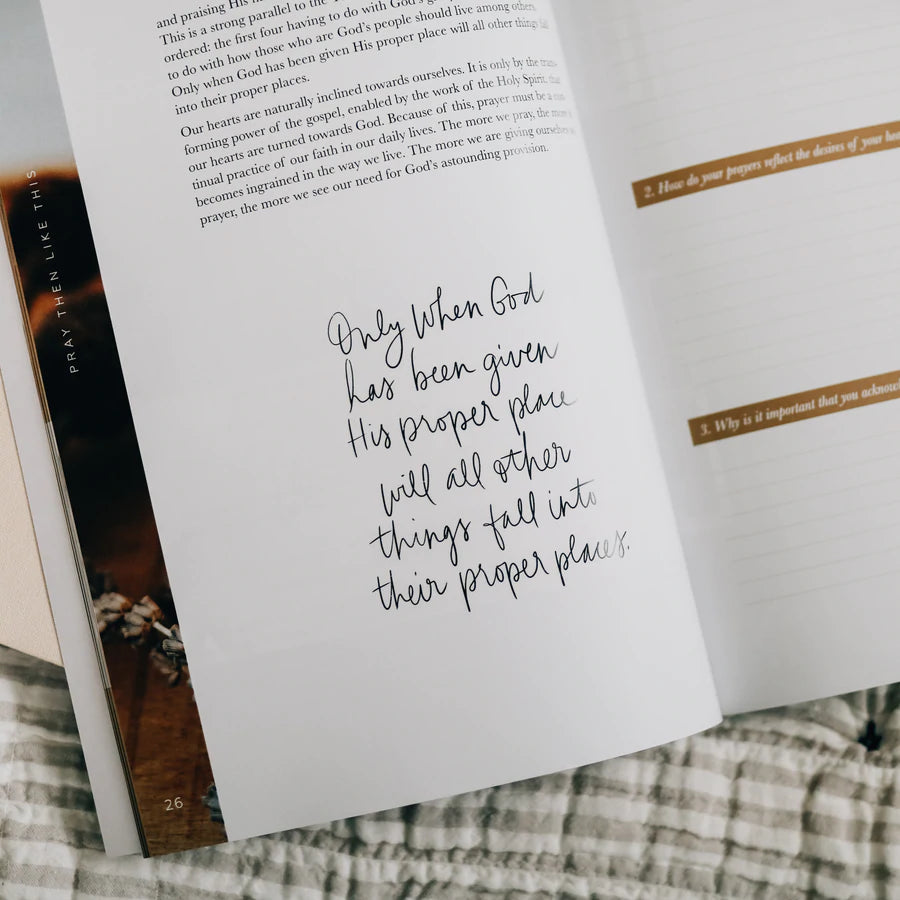 and praising His
This is a strong parallel to the
ordered: the first four having to do with God's
to do with how those who are God's people should live among others.
Only when God has been given His proper place will all other things fall
into their proper places.
Our hearts are naturally inclined towards ourselves. It is only by the trans-
forming power of the gospel, enabled by the work of the Holy Spirit, that
our hearts are turned towards God. Because of this, prayer must be a con-
tinual practice of our faith in our daily lives. The more we pray, the more it
becomes ingrained in the way we live. The more we are giving ourselves to
prayer, the more we see our need for God's astounding provision.
Only When God
has been given
His proper place
will all other
things fall into
their proper places.
PRAY THEN LIKE THIS
26
2. How do your prayers reflect the desires of your
3. Why is it important that you